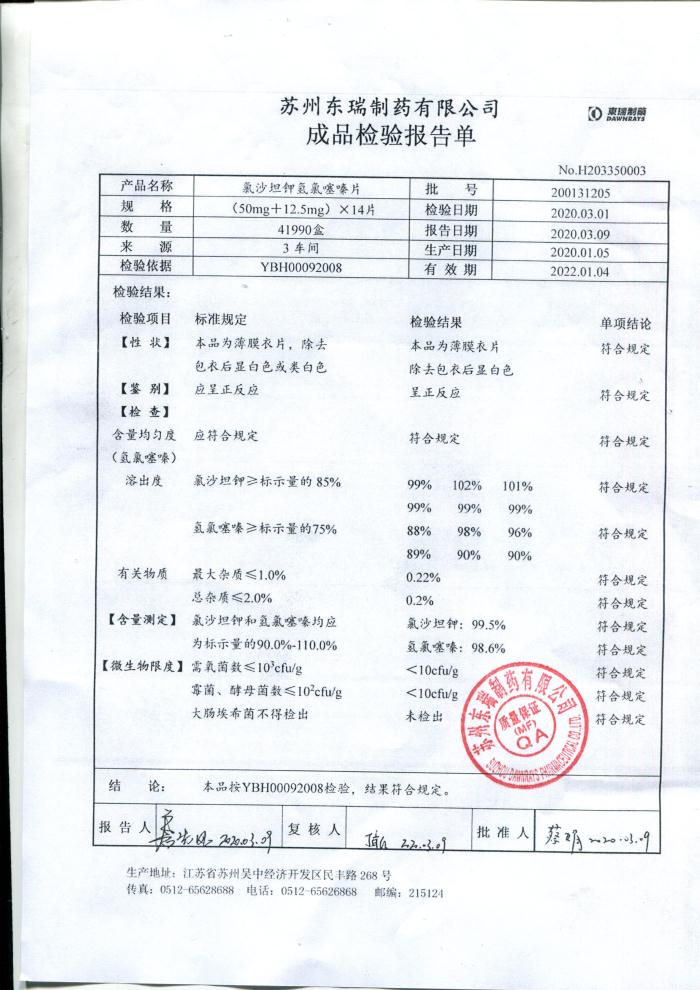 苏州东瑞制药有限公司
東瑞制藥
DAWNRAYS
成品检验报告单
No.H203350003
产品名称 氯沙坦钾氢氯噻嗪片 批 号 200131205
规 格 (50mg+12.5mg)×14片 检验日期 2020.03.01
数 量 41990盒 报告日期 2020.03.09
来 源 3 车间 生产日期 2020.01.05
检验依据 YBH00092008 有 效 期 2022.01.04
检验结果:
检验项目 标准规定 检验结果 单项结论
【性 状】 本品为薄膜衣片，除去 本品为薄膜衣片 符合规定
包衣后显白色或类白色 除去包衣后显白色
【鉴 别】 应呈正反应 呈正反应 符合规定
【检 查】
含量均匀度 应符合规定 符合规定 符合规定
(氢氯噻嗪)
溶出度 氯沙坦钾≥标示量的 85% 99% 102% 101% 符合规定
99% 99% 99%
氢氯噻嗪≥标示量的75% 88% 98% 96% 符合规定
89% 90% 90%
有关物质 最大杂质≤1.0% 0.22% 符合规定
总杂质≤2.0% 0.2% 符合规定
【含量测定】 氯沙坦钾和氢氯噻嗪均应 氯沙坦钾: 99.5% 符合规定
为标示量的90.0%-110.0% 氢氯噻嗪: 98.6% 符合规定
【微生物限度】 需氧菌数≤10³cfu/g <10cfu/g 符合规定
霉菌、酵母菌数≤10²cfu/g <10cfu/g 符合规定
大肠埃希菌不得检出 未检出 符合规定
苏州东瑞制药有限公司
质量保证
(MF)
QA
SUZHOU DAWNRAYS PHARMACEUTICAL CO.,LTD.
结 论: 本品按YBH00092008检验，结果符合规定。
报 告 人 2020.03.09 复 核 人 2020.03.09 批 准 人 蔡 2020.03.09
生产地址: 江苏省苏州吴中经济开发区民丰路 268 号
传真: 0512-65628688 电话: 0512-65626868 邮编: 215124